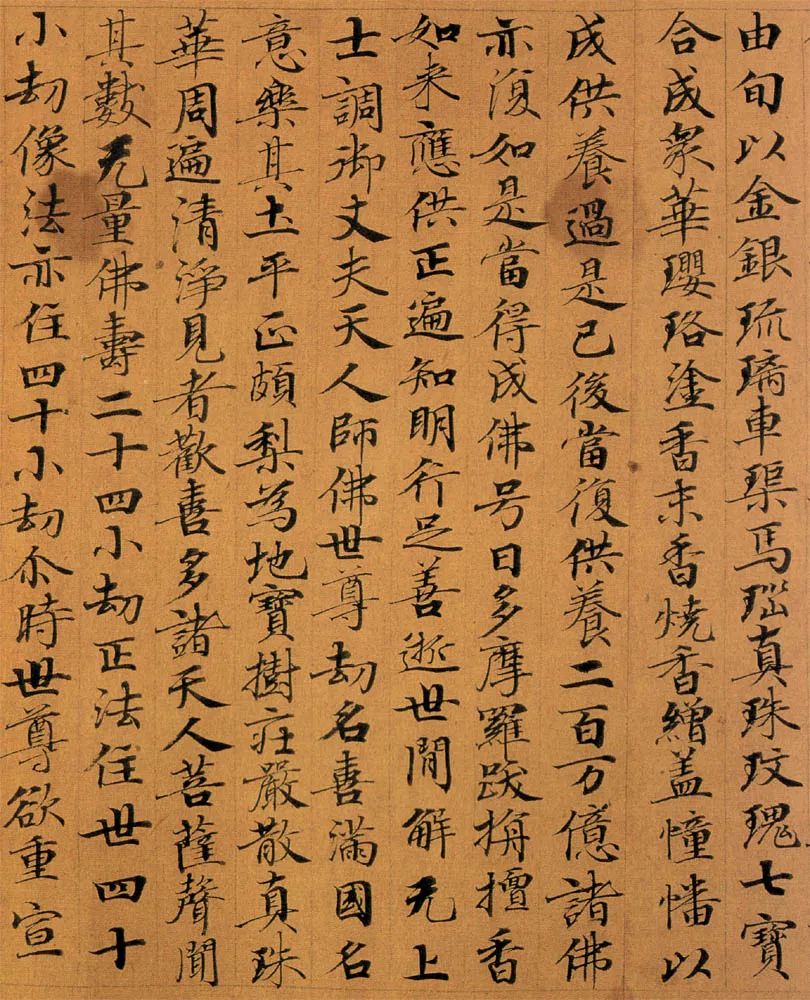 由旬以金銀琉璃車𤦲馬瑙真珠玫瑰七寶
合成眾華瓔珞塗香末香燒香繒盖幢幡以
用供養過是已後當復供養二百万億諸佛
亦復如是當得成佛号曰多摩羅跋栴檀香
如来應供正遍知明行足善逝世間解无上
士調御丈夫天人師佛世尊劫名喜滿國名
意樂其土平正頗梨為地寶樹莊嚴散真珠
華周遍清淨見者歡喜多諸天人菩薩聲聞
其數无量佛壽二十四小劫正法住世四十
小劫像法亦住四十小劫尒時世尊欲重宣